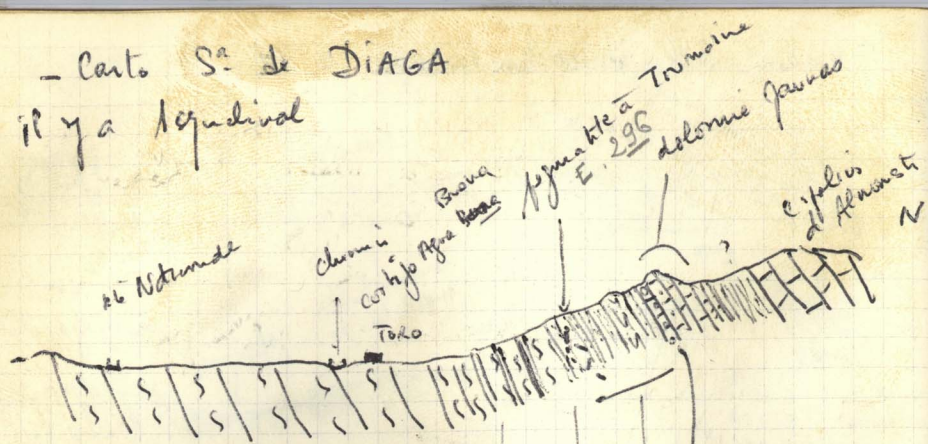 - Carto Sᵃ de DiAGA
il y a
rte Nationale
chemin
cortijo Agua Buena
TORO
pegmatite à Trumaine
E. 296
dolomie jaunas
Cipolins
d'Almonasti
N
?